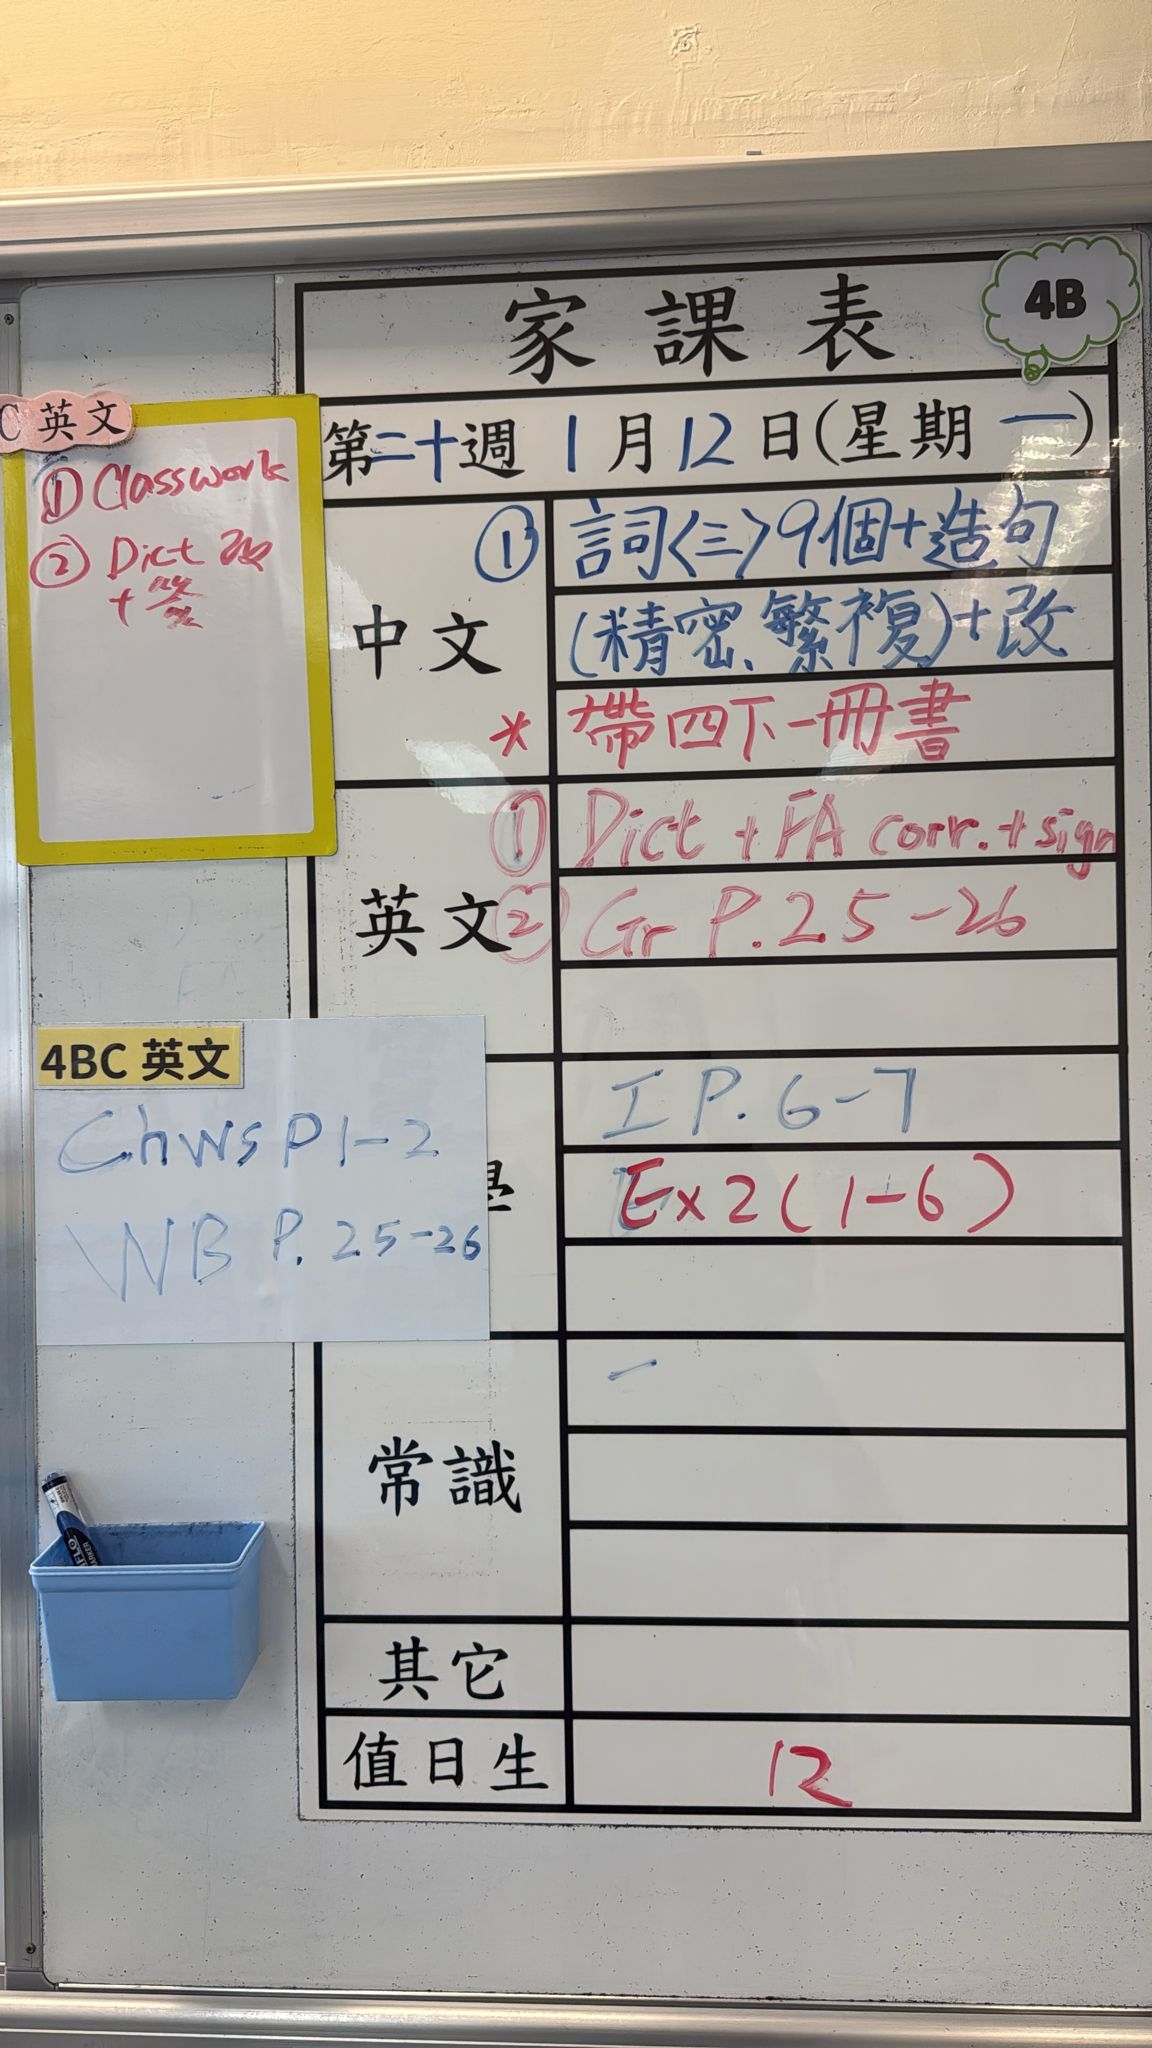 家課表
4B
第二十週 1月12日(星期一)
中文
① 詞〈三〉9個+造句
(精密、繁複)+改
* 帶四下一冊書
英文
① Dict + FA corr. + sign
② Gr P.25-26
I P.6-7
Ex2(1-6)
常識
其它
值日生
12
C 英文
① Classwork
② Dict 改
+簽
4BC 英文
Ch WS P1-2
WB P.25-26